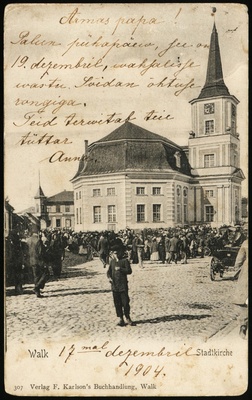 Armas papa!
Palun pühapäew, see on
19. dezembril, waksalisse
wastu. Sõidan õhtuse
rongiga.
Teid terwitab teie
tüttar
Anna.
Walk 17mal dezembril Stadtkirche
1904.
307 Verlag F. Karlson's Buchhandlung, Walk